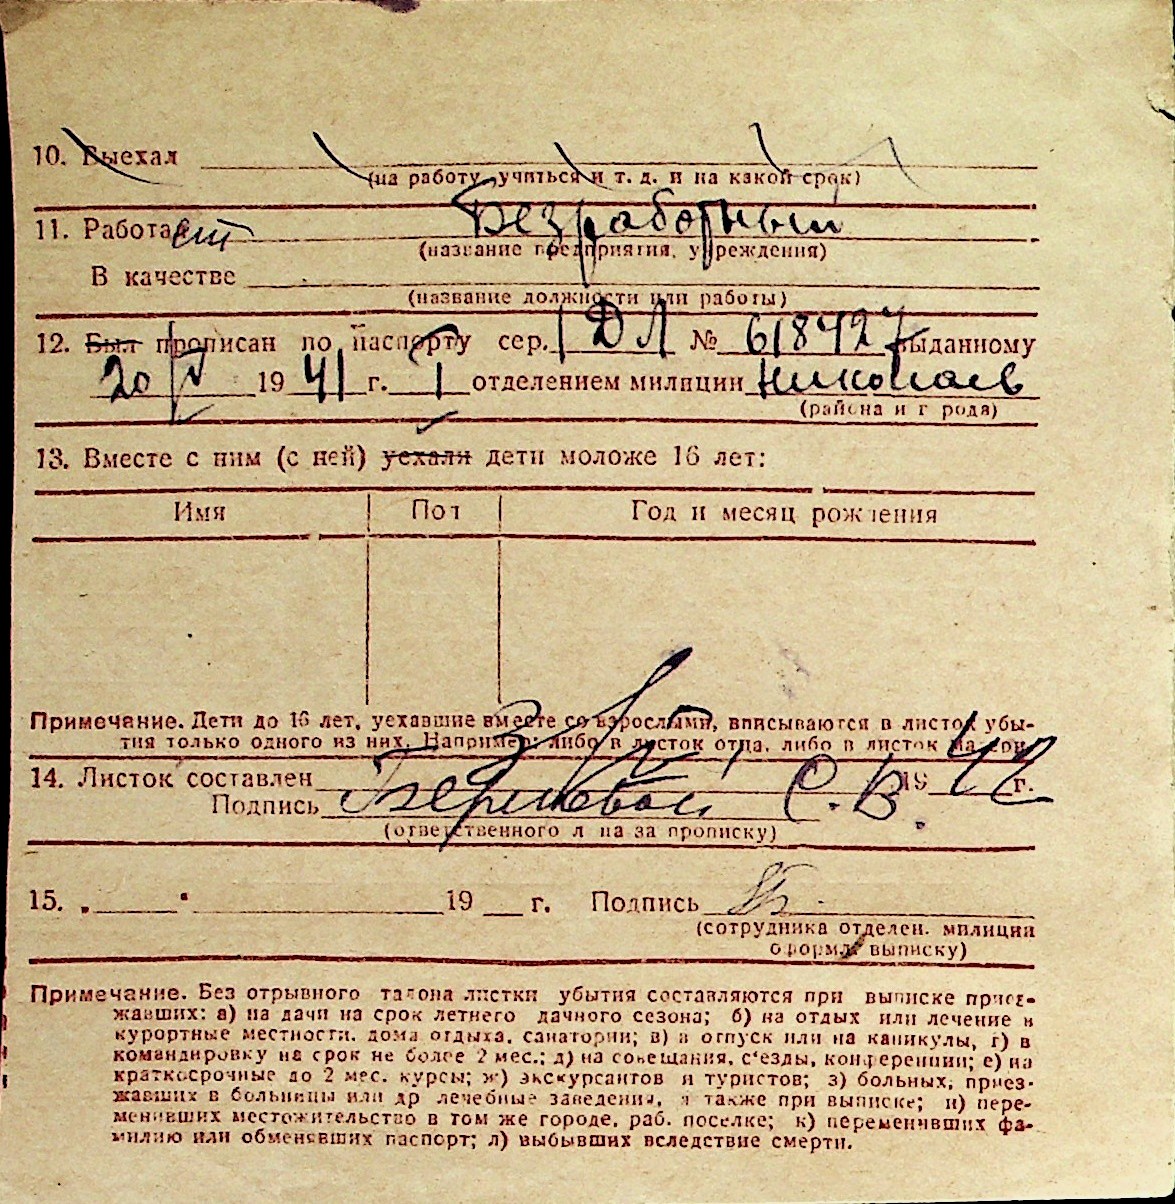 10. Выехал
(на работу, учиться и т. д. и на какой срок)
11. Работает Безработный
(название предприятия, учреждения)
В качестве
(название должности или работы)
12. Был прописан по паспорту сер. I ДЛ № 618427 выданному
20/V 1941 г. I отделением милиции Николаев
(района и города)
13. Вместе с ним (с ней) уехали дети моложе 16 лет:
Имя Пол Год и месяц рождения
Примечание. Дети до 16 лет, уехавшие вместе со взрослыми, вписываются в листок убы-
тия только одного из них. Например: либо в листок отца, либо в листок матери.
14. Листок составлен 1942 г.
Подпись С. В.
(ответственного лица за прописку)
15. „ “ 19 г. Подпись
(сотрудника отделен. милиции
оформл. выписку)
Примечание. Без отрывного талона листки убытия составляются при выписке приез-
жавших: а) на дачи на срок летнего дачного сезона; б) на отдых или лечение в
курортные местности, дома отдыха, санатории; в) в отпуск или на каникулы, г) в
командировку на срок не более 2 мес.; д) на совещания, съезды, конференции; е) на
краткосрочные до 2 мес. курсы; ж) экскурсантов и туристов; з) больных, приез-
жавших в больницы или др лечебные заведения, а также при выписке; и) пере-
менивших местожительство в том же городе, раб. поселке; к) переменивших фа-
милию или обменявших паспорт; л) выбывших вследствие смерти.